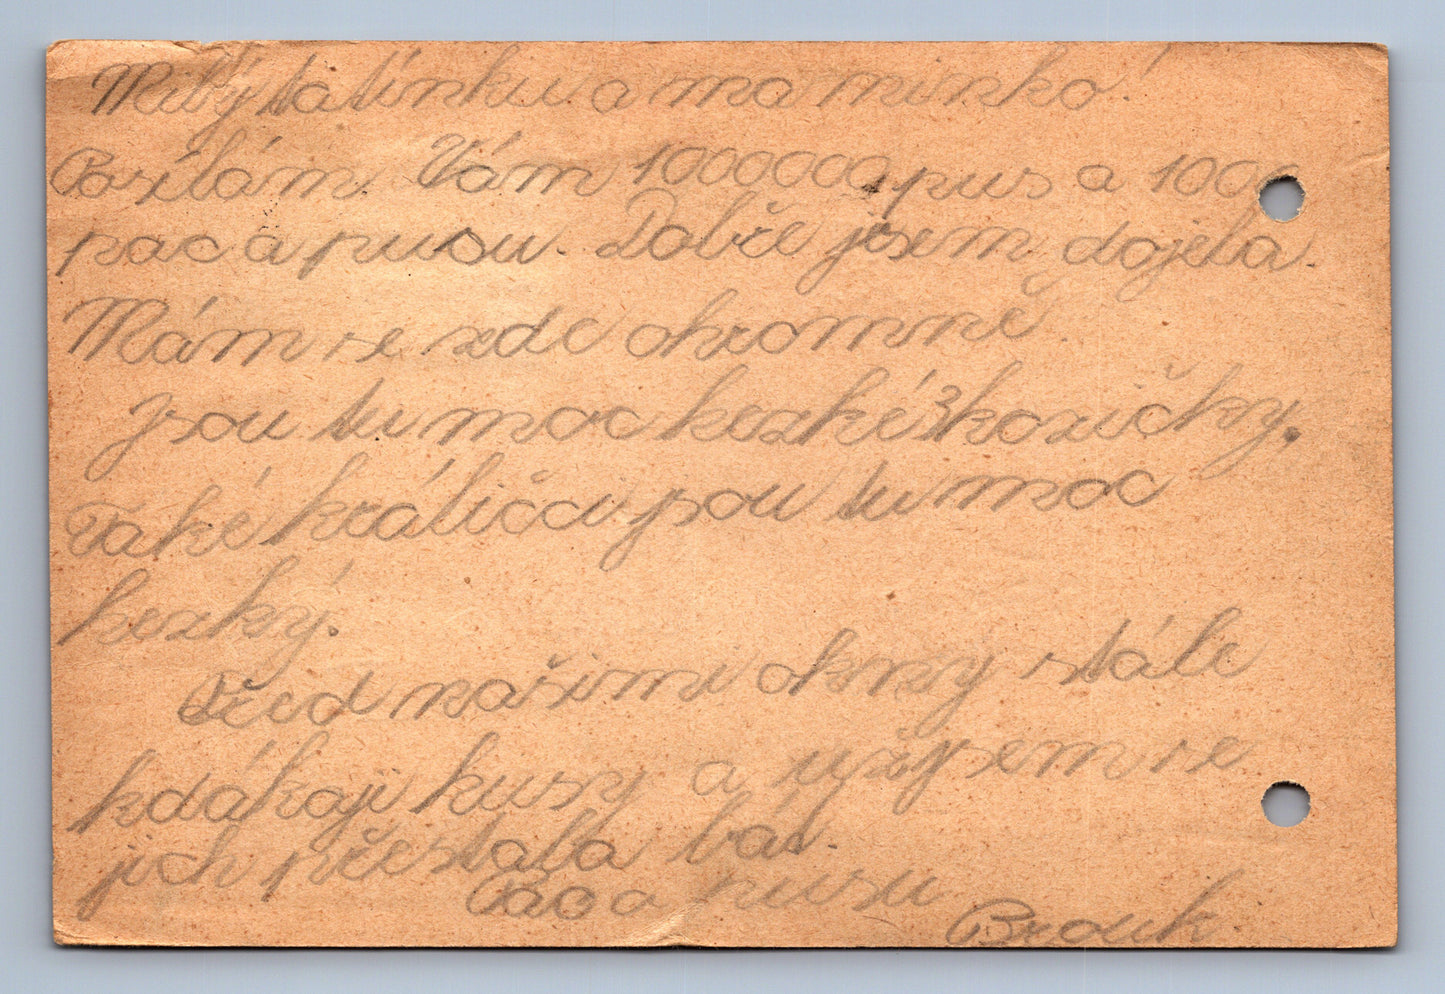 Milý tatínku a maminko!
Posílám Vám 1000000 pus a 1000
pac a pusu. Dobře jsem dojela.
Mám se zde ohromně.
Jsou tu moc hezké 3 kozičky.
Také králičci jsou tu moc
hezký.
Před našimi okny stále
kdákají kusy a už jsem se
jich přestala bát.
Pac a pusu
Brouk